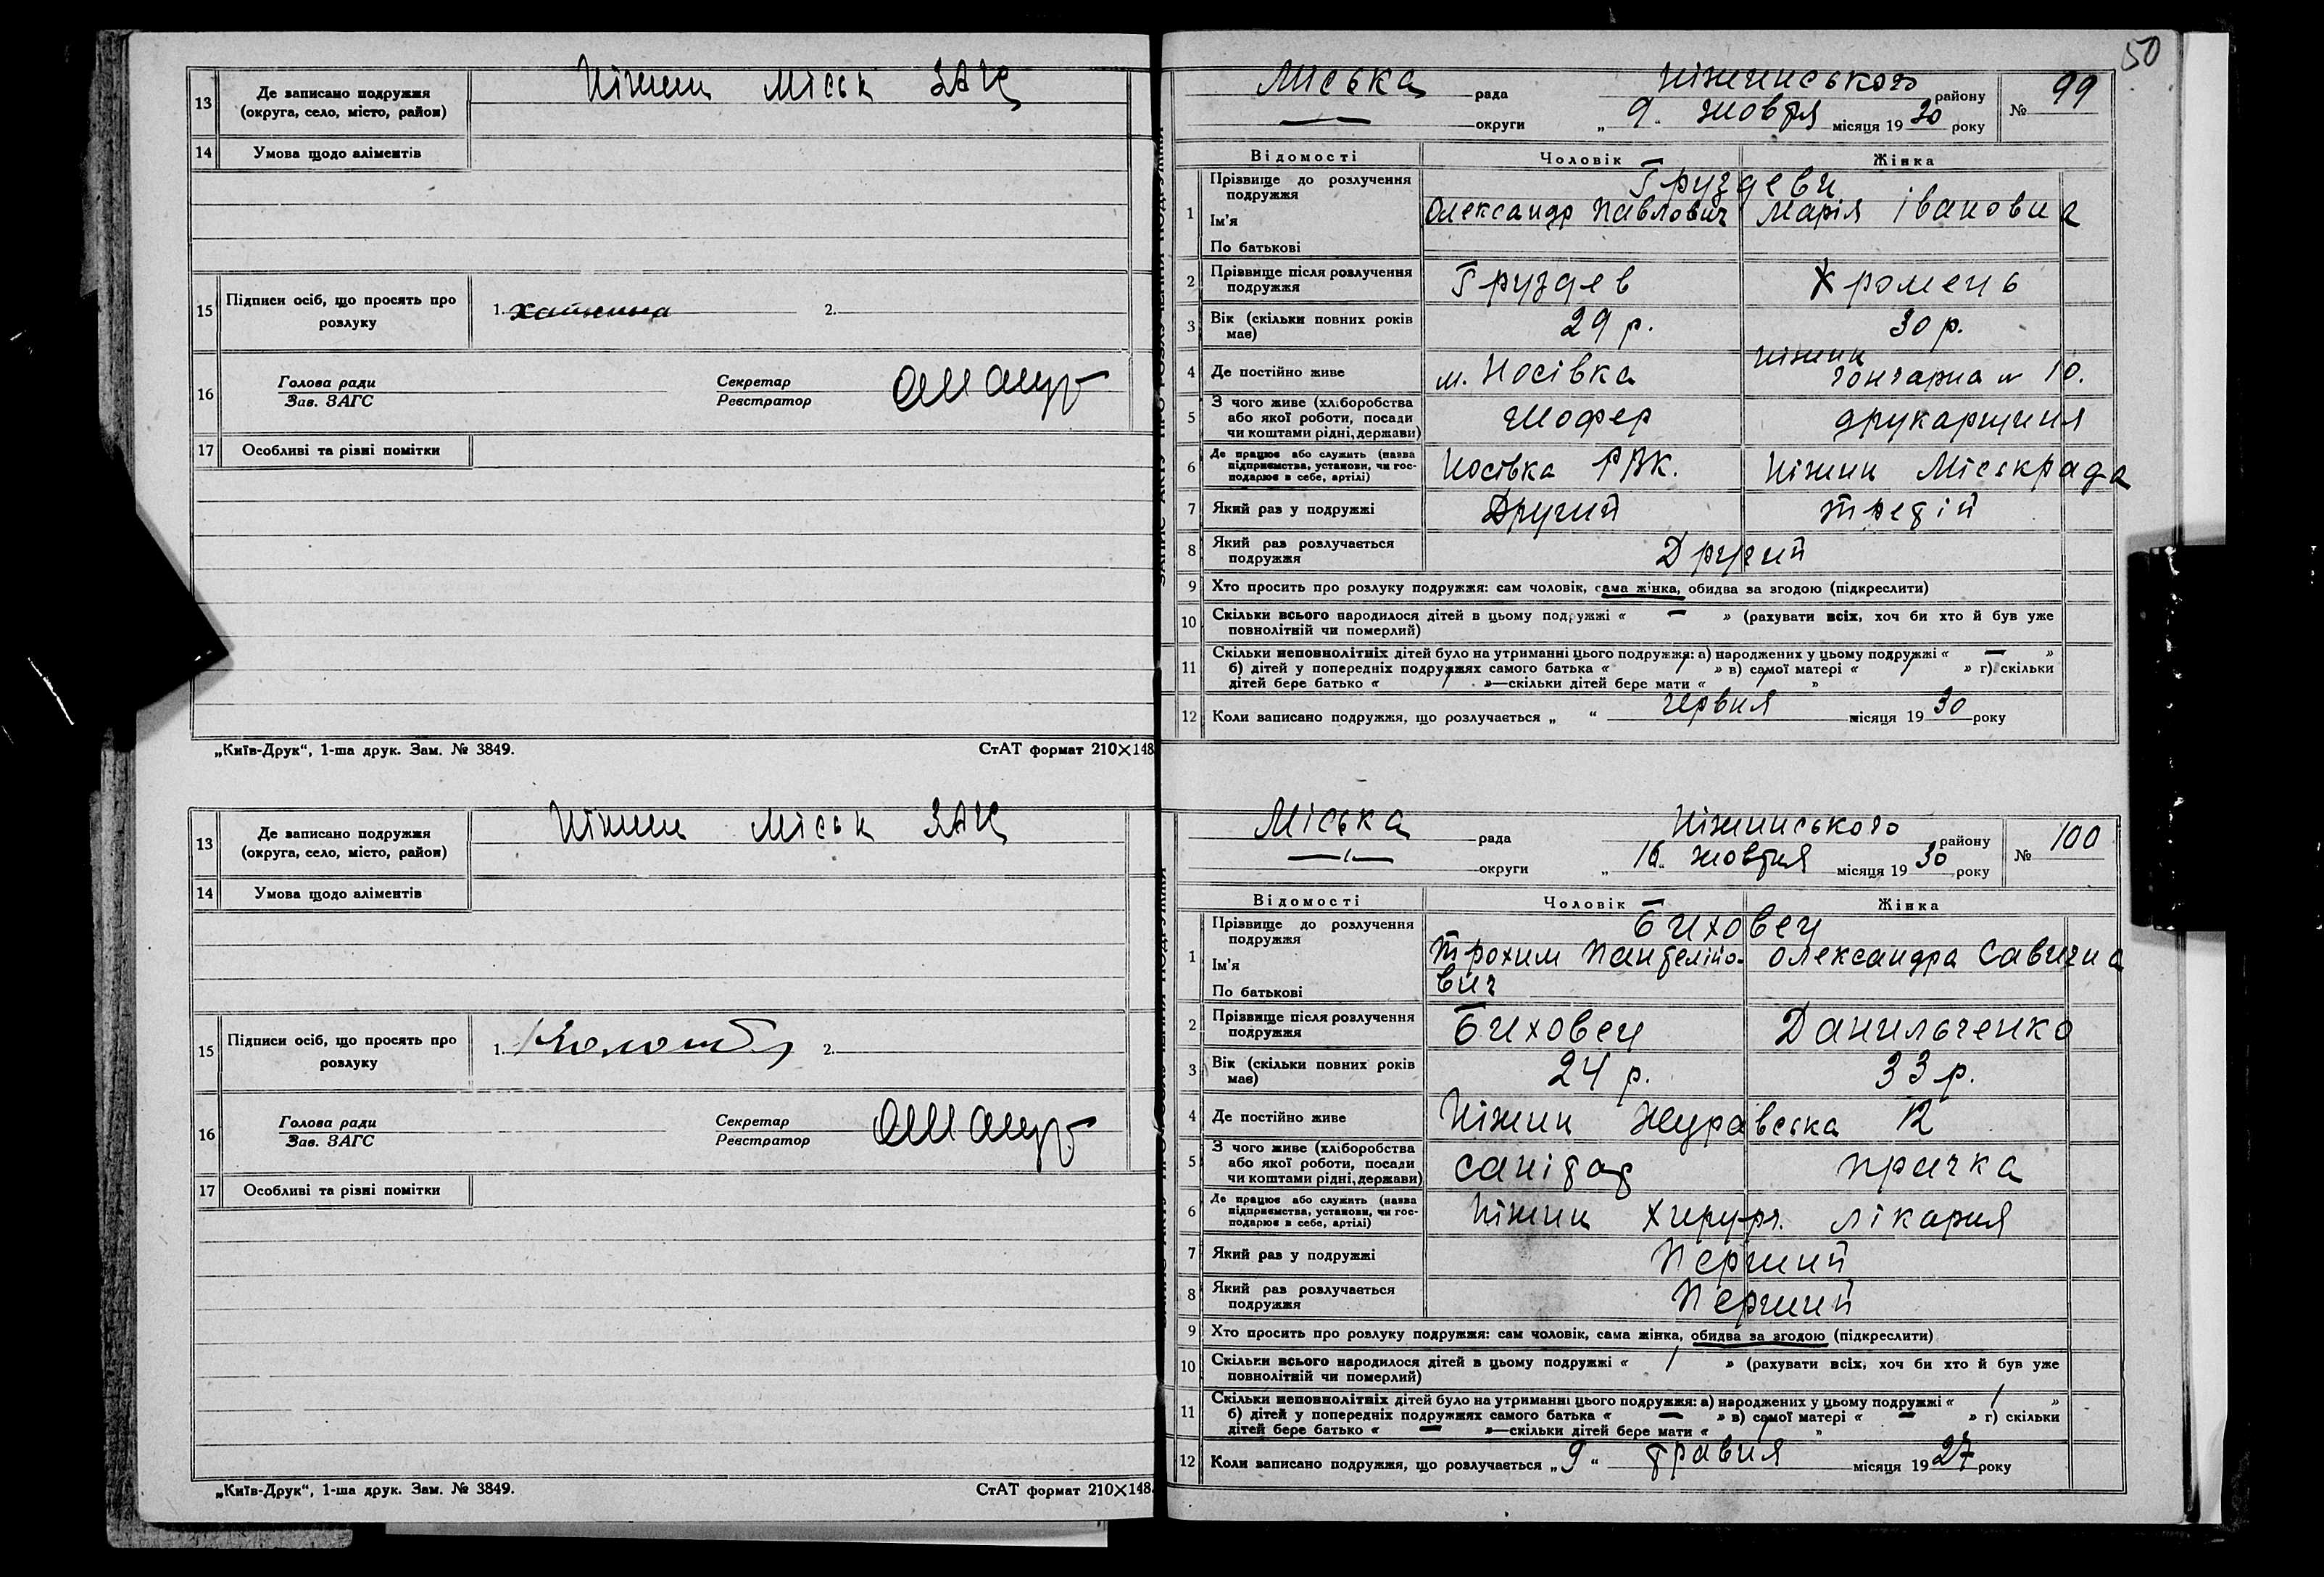 13 Де записано подружжя (округа, село, місто, район) Ніжин Міськ ЗАЦ
14 Умова щодо аліментів
15 Підписи осіб, що просять про розлуку 1. 2.
16 Голова ради Зав. ЗАГС Секретар Реєстратор
17 Особливі та різні помітки
„Київ-Друк“, 1-ша друк. Зам. № 3849. СтАТ формат 210×148.
13 Де записано подружжя (округа, село, місто, район) Ніжин Міськ ЗАЦ
14 Умова щодо аліментів
15 Підписи осіб, що просять про розлуку 1. 2.
16 Голова ради Зав. ЗАГС Секретар Реєстратор
17 Особливі та різні помітки
„Київ-Друк“, 1-ша друк. Зам. № 3849. СтАТ формат 210×148.
50
Міська рада Ніжинського району № 99
— округи „ 9 „ жовтня місяця 1930 року
Відомості Чоловік Жінка
1 Прізвище до розлучення подружжя Груздеви
Ім'я Олександр Павлович Марія Івановна
По батькові
2 Прізвище після розлучення подружжя Груздев Хромець
3 Вік (скільки повних років має) 29 р. 30 р.
4 Де постійно живе м. Носівка Ніжин Гончарна № 10.
5 З чого живе (хліборобства або якої роботи, посади чи коштами рідні, держави) Шофер друкарщиця
6 Де працює або служить (назва підприємства, установи, чи господарює в себе, артілі) Носівка РВК. Ніжин Міськрада
7 Який раз у подружжі Другий третій
8 Який раз розлучається подружжя Другий
9 Хто просить про розлуку подружжя: сам чоловік, сама жінка, обидва за згодою (підкреслити)
10 Скільки всього народилося дітей в цьому подружжі « — » (рахувати всіх, хоч би хто й був уже
повнолітній чи померлий)
11 Скільки неповнолітніх дітей було на утриманні цього подружжя: а) народжених у цьому подружжі « — »
б) дітей у попередніх подружжях самого батька « / » в) самої матері « / » г) скільки
дітей бере батько « / »—скільки дітей бере мати « / »
12 Коли записано подружжя, що розлучається „ “ червня місяця 1930 року
Міська рада Ніжинського району № 100
— округи „ 16 „ жовтня місяця 1930 року
Відомості Чоловік Жінка
1 Прізвище до розлучення подружжя Биховец
Ім'я Трохим Пантелійо- Олександра Савична
По батькові вич
2 Прізвище після розлучення подружжя Биховец Данильченко
3 Вік (скільки повних років має) 24 р. 33 р.
4 Де постійно живе Ніжин Журавська 12
5 З чого живе (хліборобства або якої роботи, посади чи коштами рідні, держави) санітар прачка
6 Де працює або служить (назва підприємства, установи, чи господарює в себе, артілі) Ніжин Хирург. лікарня
7 Який раз у подружжі Перший
8 Який раз розлучається подружжя Перший
9 Хто просить про розлуку подружжя: сам чоловік, сама жінка, обидва за згодою (підкреслити)
10 Скільки всього народилося дітей в цьому подружжі « / » (рахувати всіх, хоч би хто й був уже
повнолітній чи померлий)
11 Скільки неповнолітніх дітей було на утриманні цього подружжя: а) народжених у цьому подружжі « / »
б) дітей у попередніх подружжях самого батька « — » в) самої матері « — » г) скільки
дітей бере батько « — »—скільки дітей бере мати « / »
12 Коли записано подружжя, що розлучається „ 9 “ травня місяця 1927 року